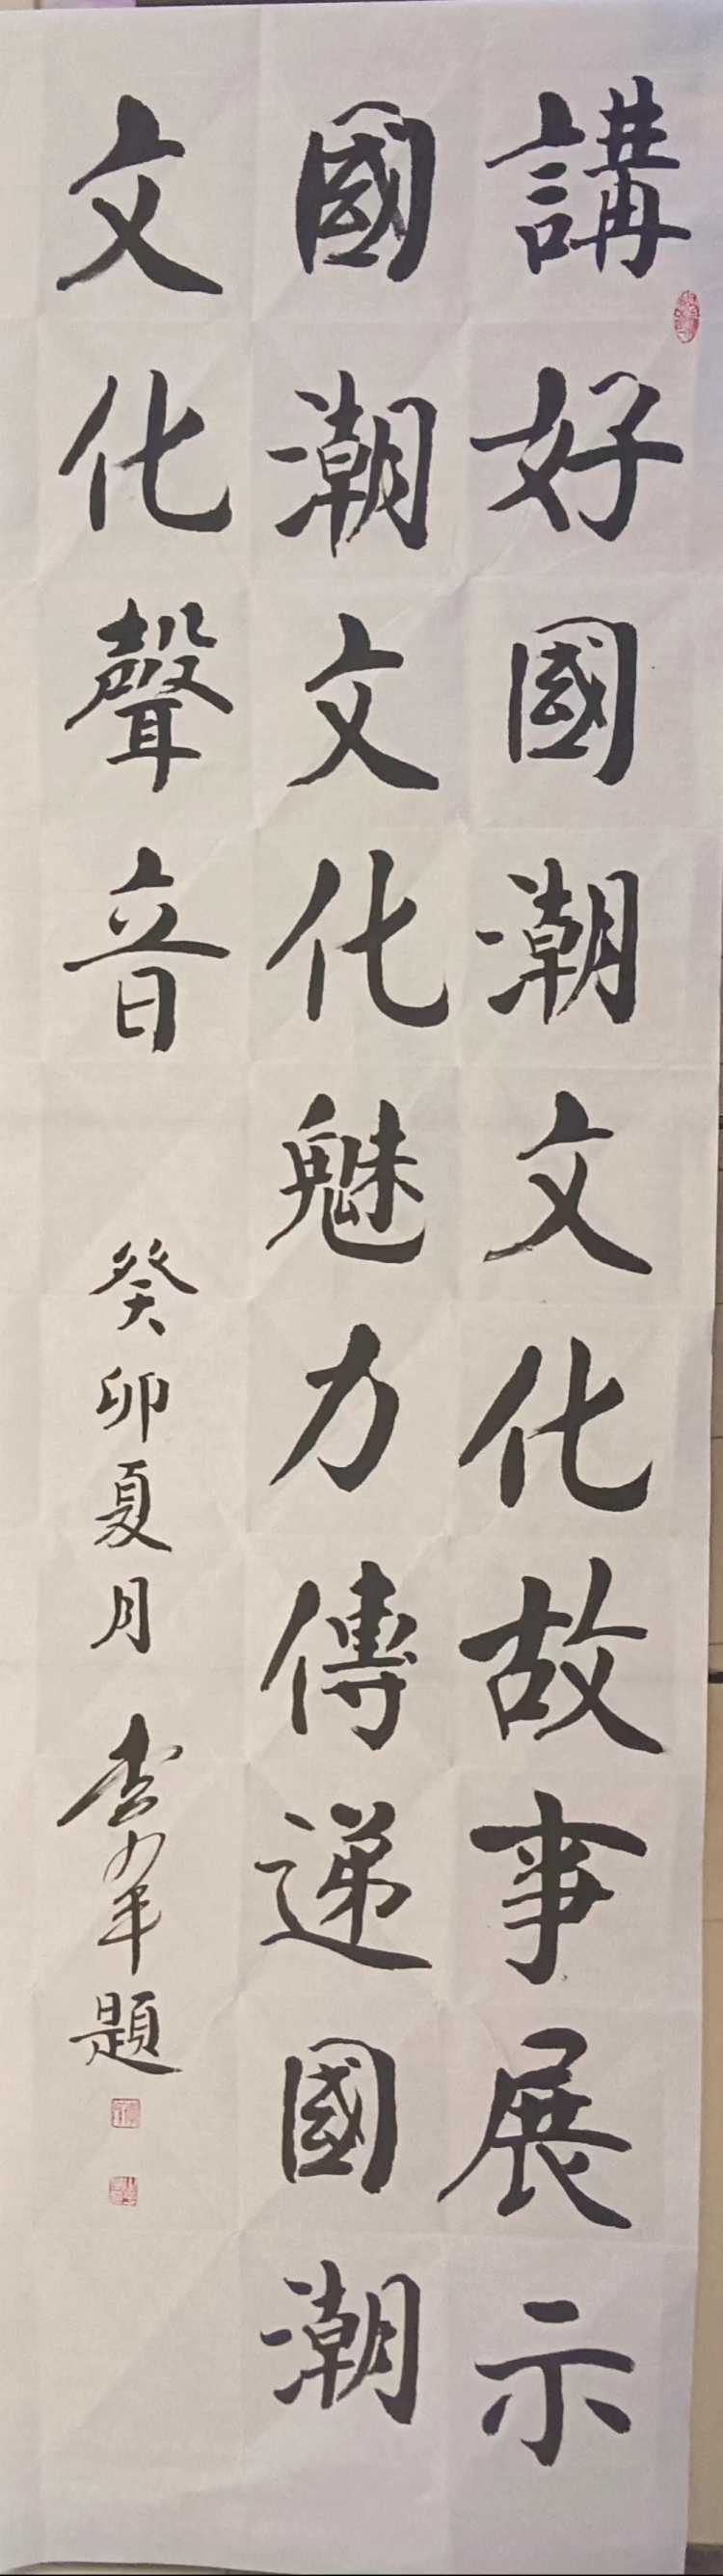 講好國潮文化故事展示
國潮文化魅力傳遞國潮
文化聲音
癸卯夏月 李少年題